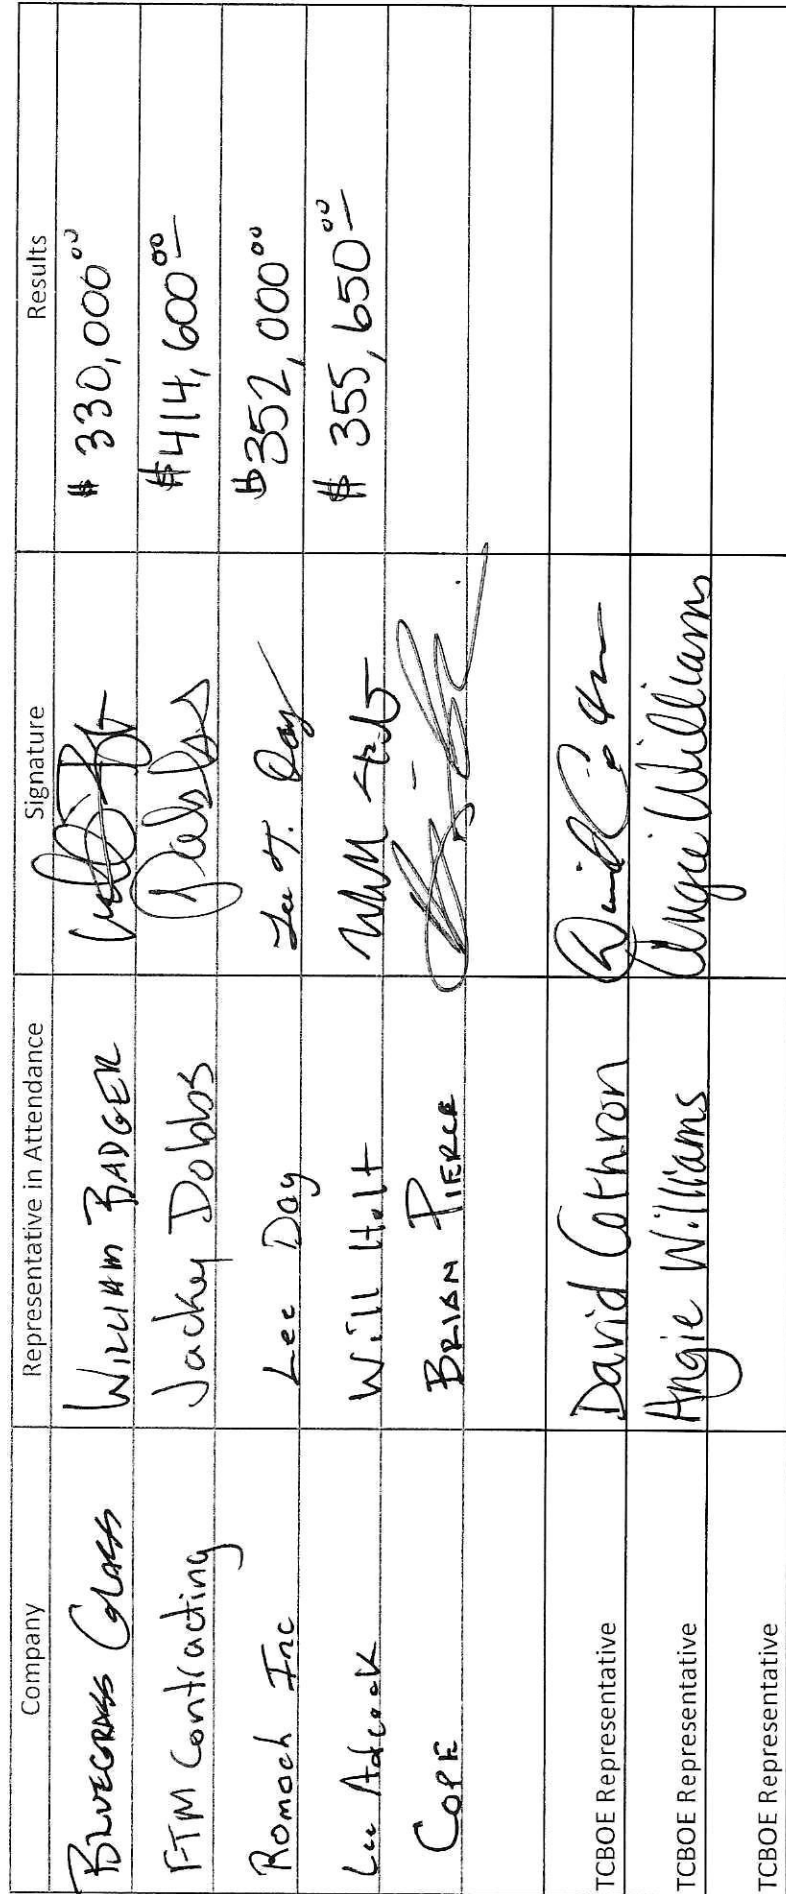 Company Representative in Attendance Signature Results
BLUEGRASS GLASS WILLIAM BADGER # 330,000⁰⁰
FTM Contracting Jackey Dobbs $414,600⁰⁰
Romach Inc Lee Day Lee T. Day $352,000⁰⁰
Lee Adcock Will Holt $ 355,650⁰⁰
COPE BRIAN PIERCE
TCBOE Representative David Cothron
TCBOE Representative Angie Williams Angie Williams
TCBOE Representative